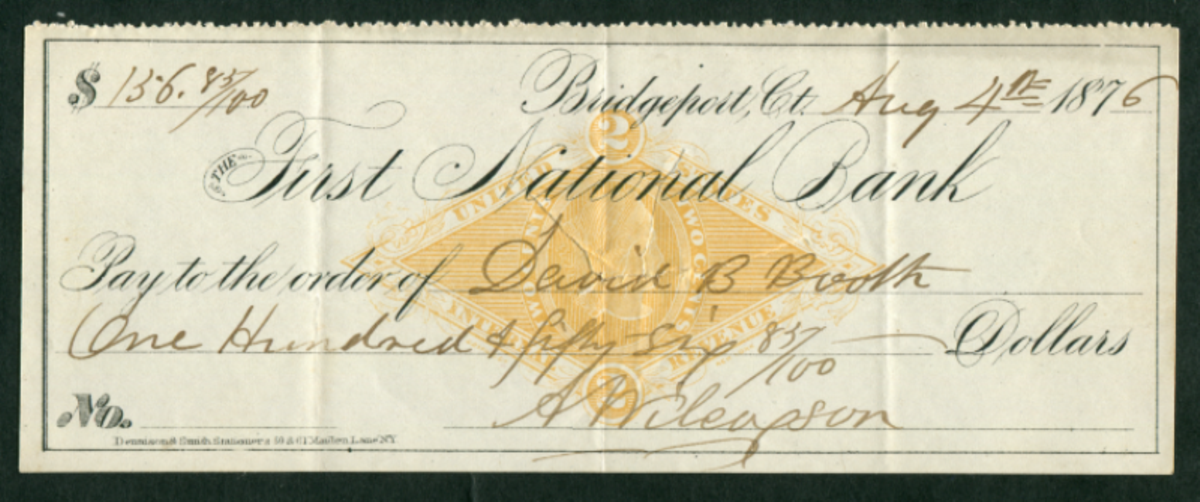 $ 156. 85/100 Bridgeport, Ct. Aug 4th 1876
THE First National Bank
2
UNITED STATES
TWO CENTS
Pay to the order of David B Booth
One Hundred & fifty six 85/100 Dollars
REVENUE
2
No.
Dennison & Smith, Stationers 59 & 61 Maiden Lane NY